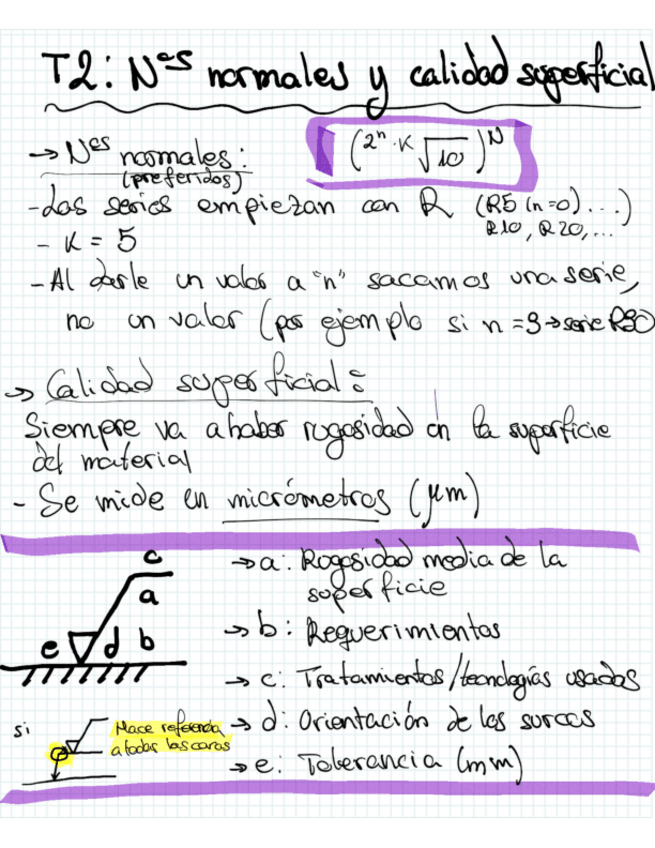 T2: Nos normales y calidad superficial
→ Nos normales: (2ⁿ·K√10)ᴺ
(preferidos)
-Las series empiezan con R (R5 (n=0) ...)
R10, R20,...
- K = 5
- Al darle un valor a "n" sacamos una serie,
no un valor (por ejemplo si n = 3→ serie R80
→ Calidad superficial:
Siempre va a haber rugosidad en la superficie
del material
- Se mide en micrómetros (μm)
c
a
e d b
→ a: Rugosidad media de la
superficie
→ b: Requerimientos
→ c: Tratamientos/tecnologías usadas
→ d: Orientación de los surcos
→ e: Tolerancia (mm)
si
Hace referencia
a todas las caras